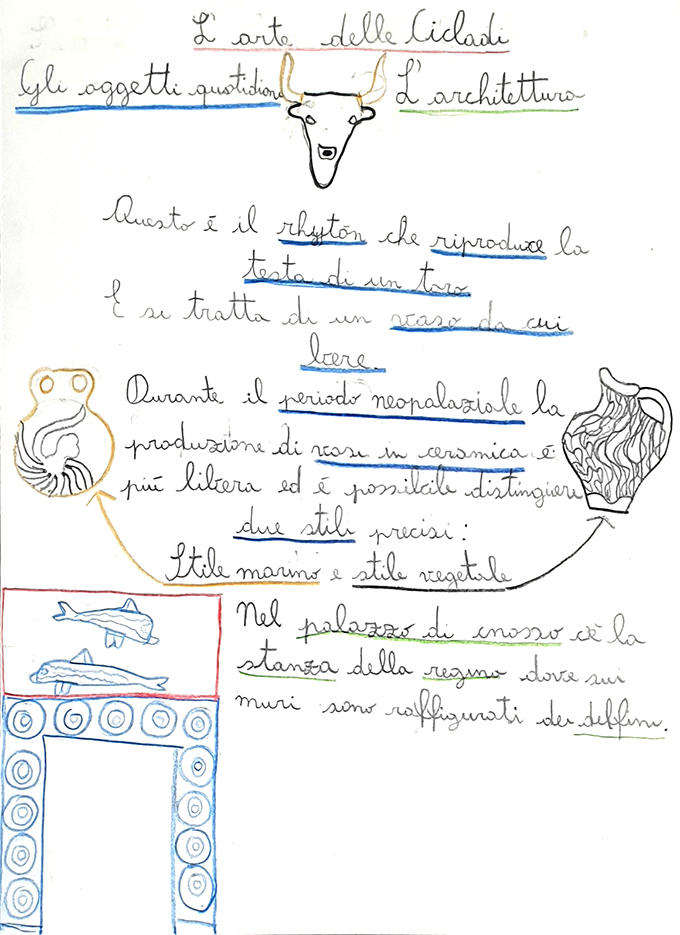 L'arte delle Cicladi
Gli oggetti quotidiani
L'architettura
Questo è il rhytón che riproduce la
testa di un toro
E si tratta di un vaso da cui
bere.
Durante il periodo neopalaziale la
produzione di vasi in ceramica è
più libera ed è possibile distinguere
due stili precisi:
Stile marino e stile vegetale
Nel palazzo di cnosso c'è la
stanza della regina dove sui
muri sono raffigurati dei delfini.